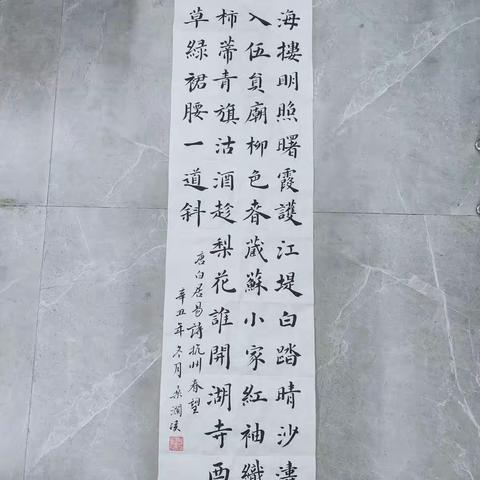 海樓明照曙霞護江堤白踏晴沙
入伍員廟柳色春藏蘇小家紅袖織
柿蒂青旗沽酒趁梨花誰開湖寺西
草綠裙腰一道斜
唐白居易詩杭州春望
辛丑年冬月